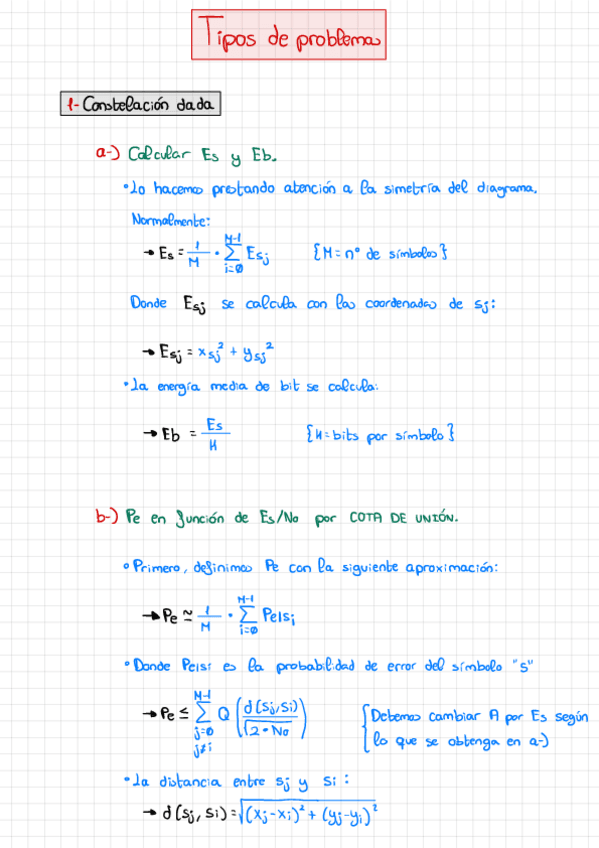 Tipos de problema
1- Constelación dada
a-) Calcular Es y Eb.
• Lo hacemos prestando atención a la simetría del diagrama.
Normalmente:
→ Es = 1/M · Σ_{i=0}^{M-1} Esj {M = nº de símbolos}
Donde Esj se calcula con las coordenadas de sj:
→ Esj = xsj² + ysj²
• La energía media de bit se calcula:
→ Eb = Es/H {H = bits por símbolo}
b-) Pe en función de Es/No por COTA DE UNIÓN.
• Primero, definimos Pe con la siguiente aproximación:
→ Pe ≃ 1/M · Σ_{i=0}^{M-1} Pe|si
• Donde Pe|si es la probabilidad de error del símbolo "s"
→ Pe ≤ Σ_{j=0, j≠i}^{M-1} Q (d(sj,si)/√(2·No)) {Debemos cambiar A por Es según
lo que se obtenga en a-)
• La distancia entre sj y si:
→ d(sj,si) = √((xj-xi)² + (yj-yi)²)